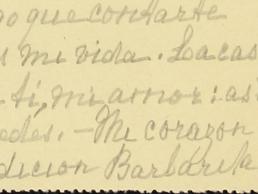 go que contarte
s mi vida. La cas
ti, mi amor: as
edes. — Mi corazon
dicion Barbarita